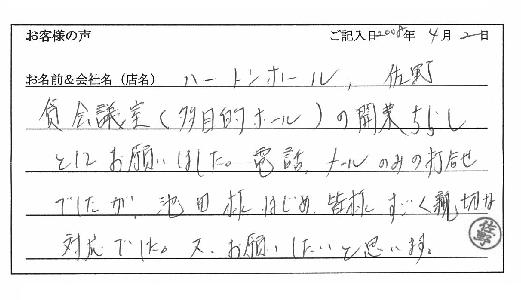 お客様の声 ご記入日2008年 4月 2日
お名前&会社名（店名） ハートンホール, 佐野
貸会議室（多目的ホール）の開業ちらし
とにお願いしました。電話,メールのみの打合せ
でしたが、池田様はじめ、皆様すごく親切な
対応でした。又、お願いしたいと思います。
佐野